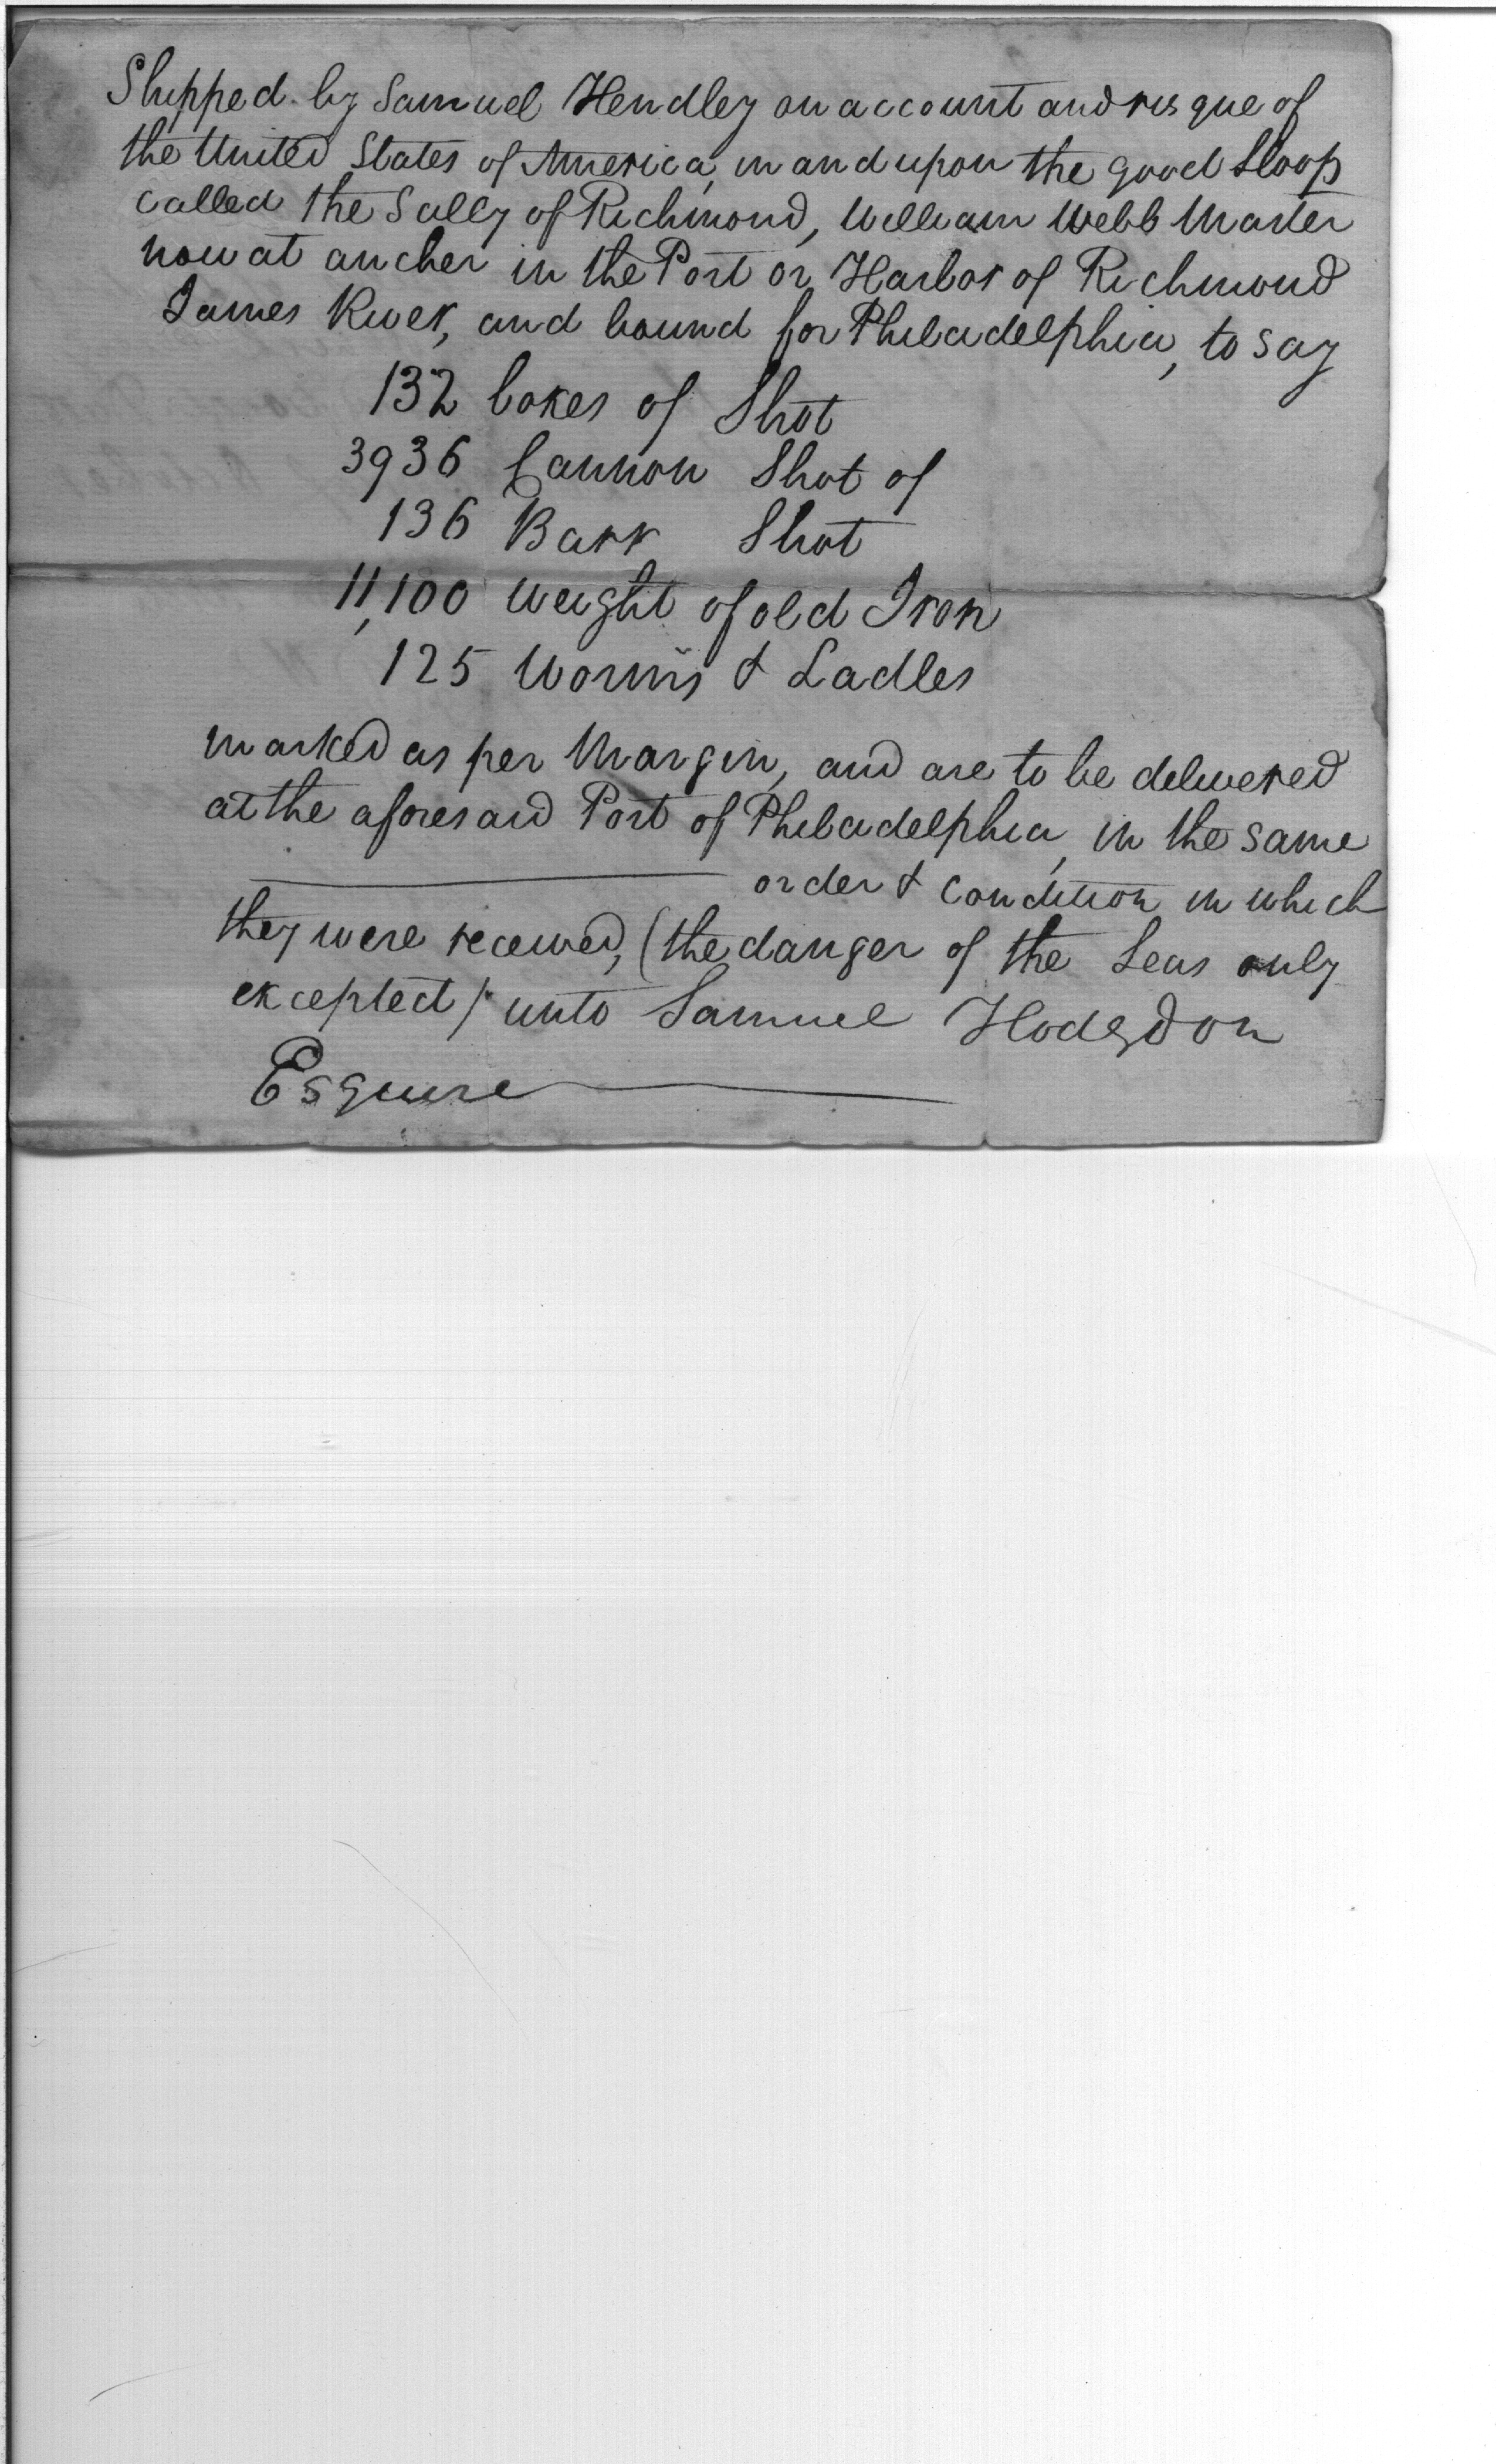 Shipped by Samuel Hendley on account and risque of
the United States of America, in and upon the good Sloop
called the Sally of Richmond, William Webb Master
now at ancher in the Port or Harbor of Richmond
James River, and bound for Philadelphia, to say
132 boxes of Shot
3936 Cannon Shot of
136 Barr Shot
11,100 weight of old Iron
125 Worms & Ladles
marked as per Margin, and are to be delivered
at the aforesaid Port of Philadelphia, in the same
order & condition in which
they were received, (the danger of the Seas only
excepted) unto Samuel Hodgdon
Esquire